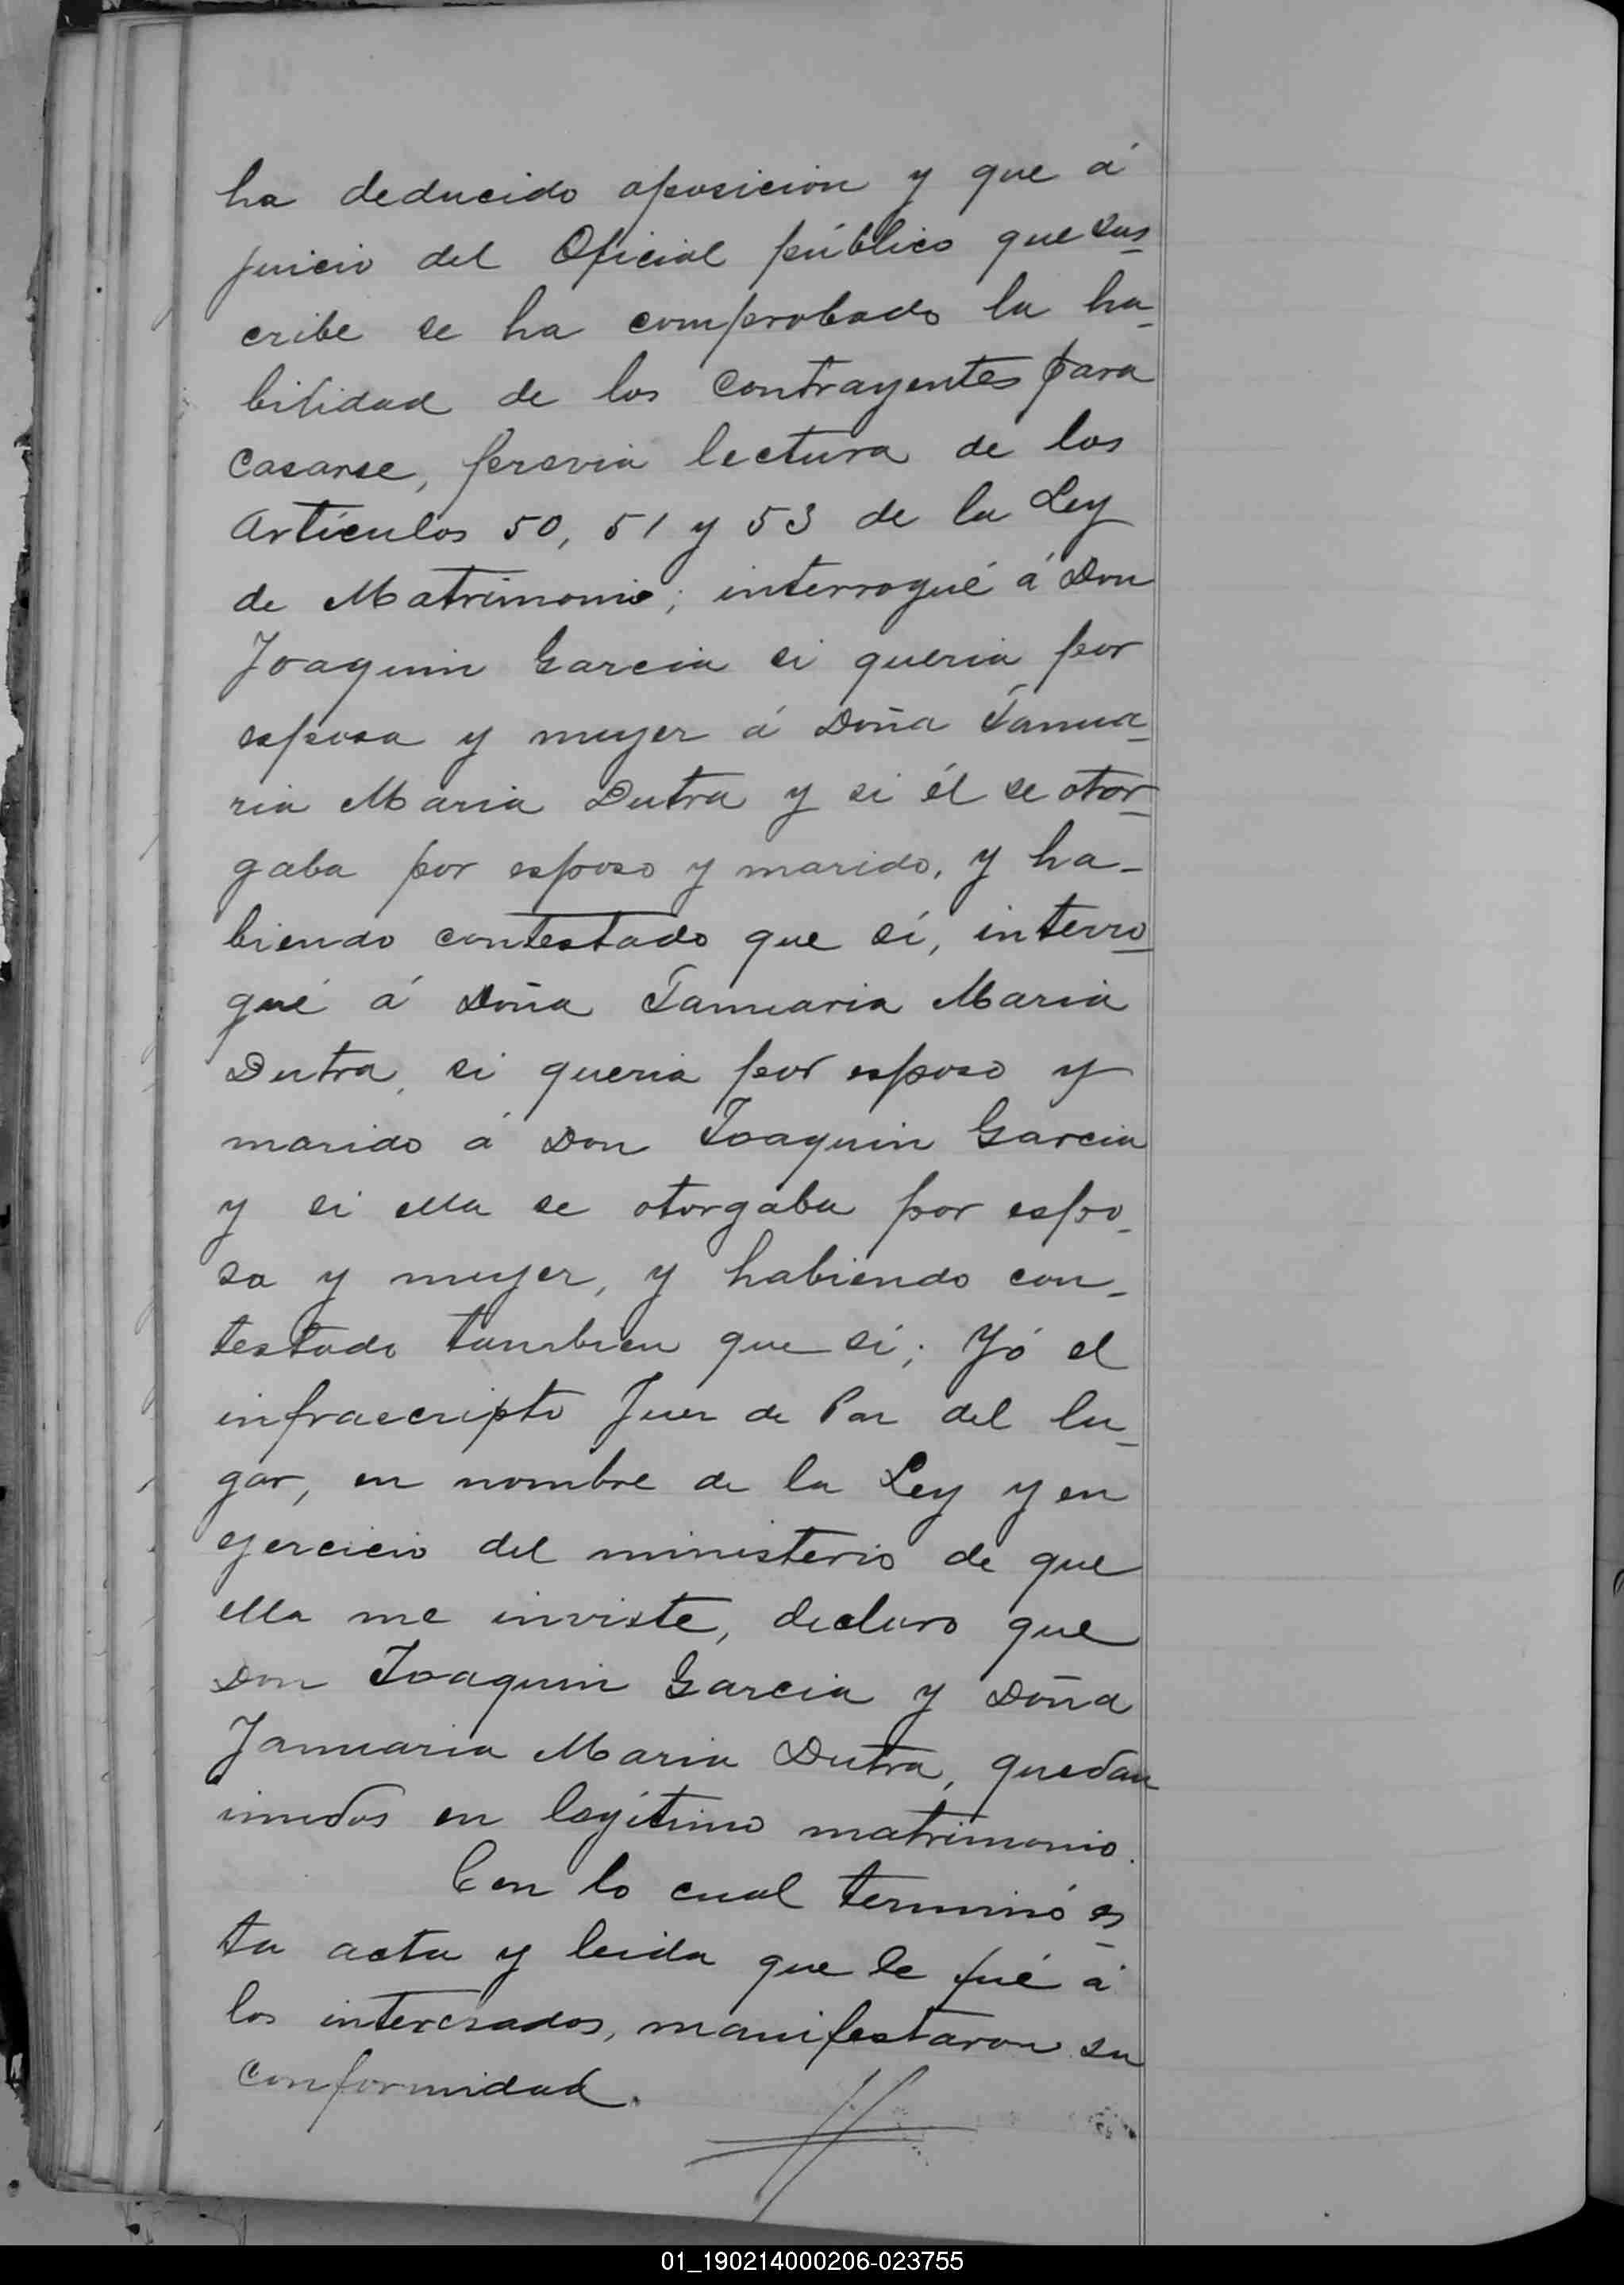 ha deducido oposicion y que á
juicio del Oficial público que sus-
cribe se ha comprobado la ha-
bilidad de los Contrayentes para
Casarse, previa lectura de los
Artículos 50, 51 y 53 de la Ley
de Matrimonio; interrogué á Don
Joaquin Garcia si queria por
esposa y mujer á Doña Janua-
ria Maria Dutra y si él se otor-
gaba por esposo y marido, y ha-
biendo contestado que sí, interro-
gué á Doña Januaria Maria
Dutra, si queria por esposo y
marido á Don Joaquin Garcia
y si ella se otorgaba por espo-
sa y mujer, y habiendo con-
testado tambien que sí; Yó el
infraescripto Juez de Paz del lu-
gar, en nombre de la Ley y en
ejercicio del ministerio de que
ella me inviste, declaro que
Don Joaquin Garcia y Doña
Januaria Maria Dutra, quedan
unidos en legítimo matrimonio.
Con lo cual terminó es-
ta acta y leida que le fué á
los interesados, manifestaron su
Conformidad.
01_190214000206-023755